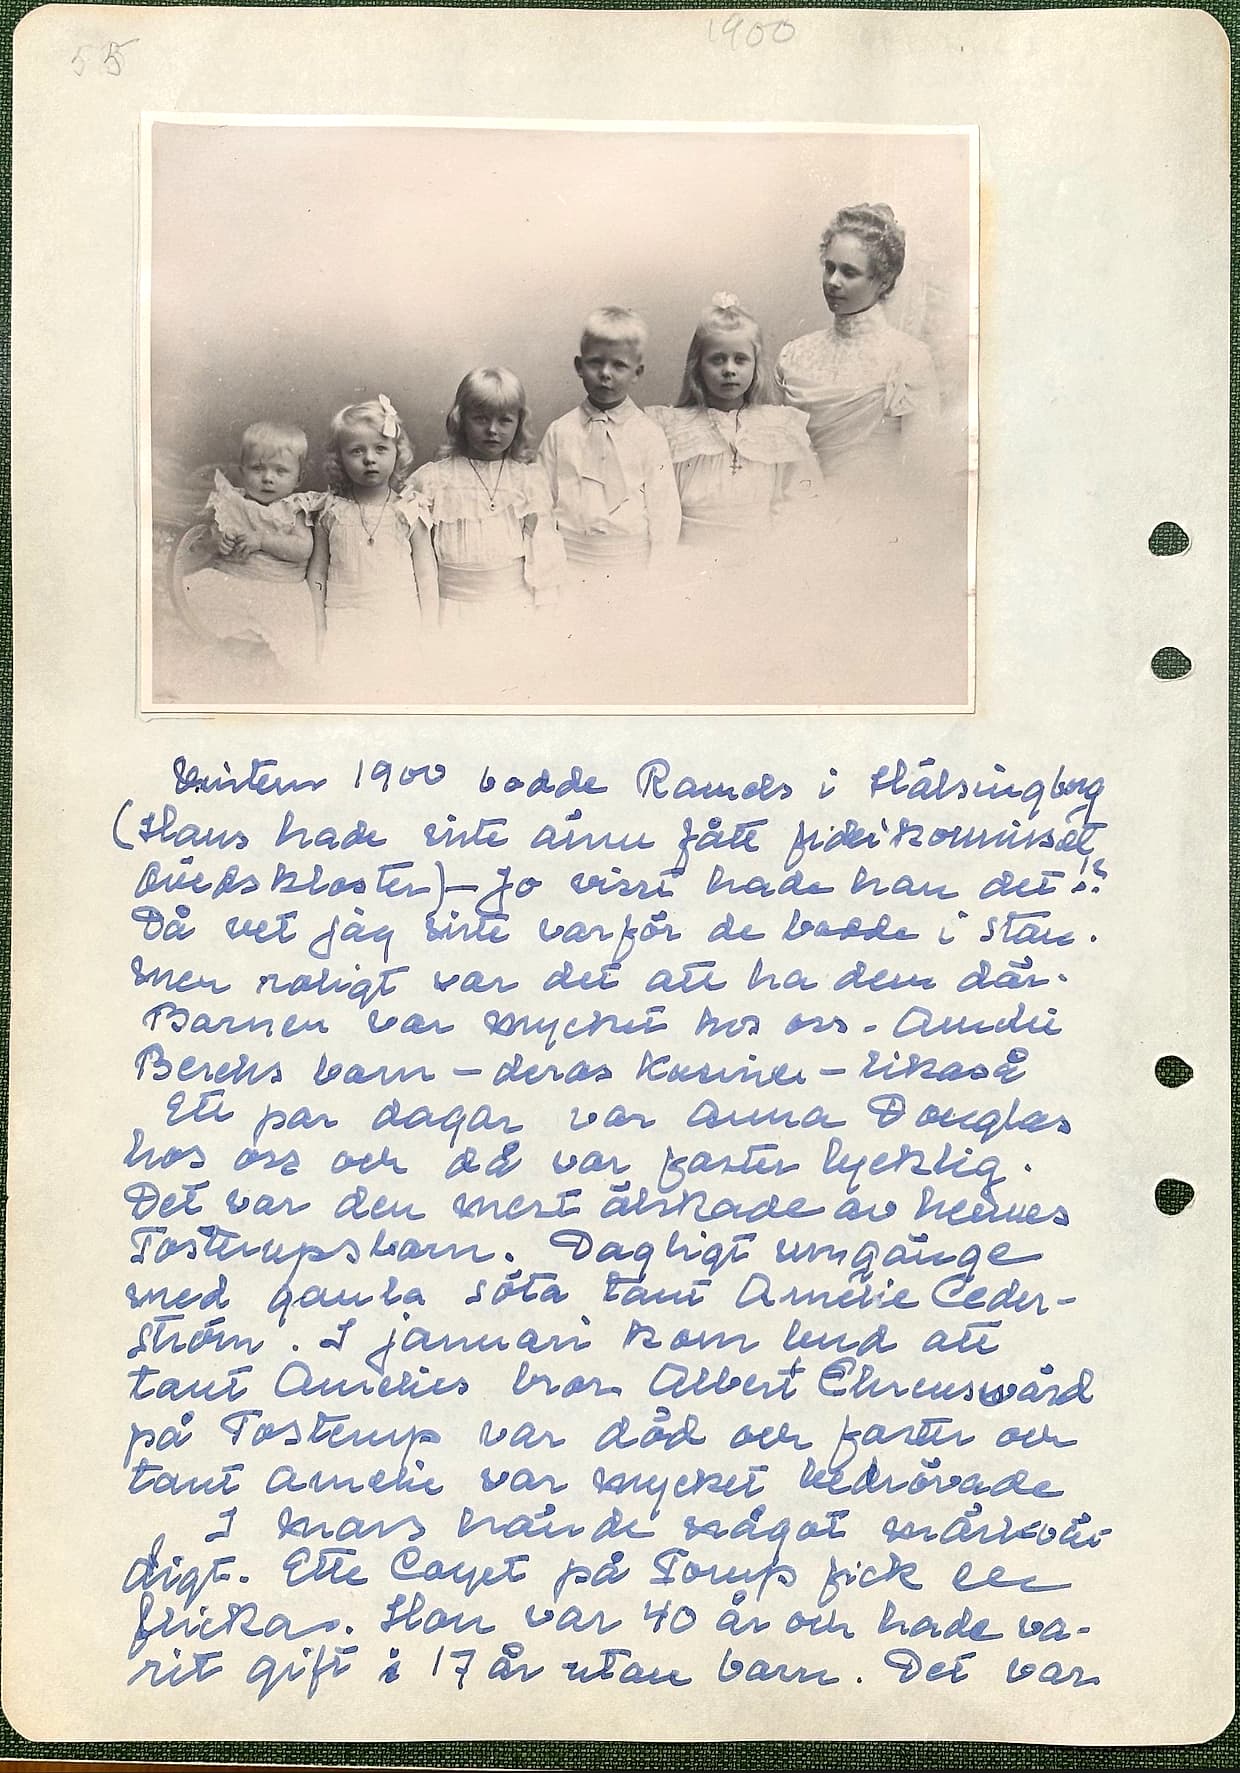 55
1900
Vintern 1900 bodde Ramels i Hälsingborg
(Hans hade inte ännu fått fideikommisset
Övedskloster) – Jo visst hade han det!?
Då vet jag inte varför de bodde i stan.
Men roligt var det att ha dem där.
Barnen var mycket hos oss. Amelie
Berchs barn – deras kusiner – likaså
Ett par dagar var Anna Douglas
hos oss och då var faster lycklig.
Det var den mest älskade av hennes
Tosterupsbarn. Dagligt umgänge
med gamla söta tant Amelie Ceder-
ström. I januari kom bud att
tant Amelies bror Albert Ehrensvärd
på Tosterup var död och faster och
tant Amelie var mycket bedrövade
I mars hände något märkvär
digt. Ette Coyet på Torup fick en
flicka. Hon var 40 år och hade va-
rit gift i 17 år utan barn. Det var